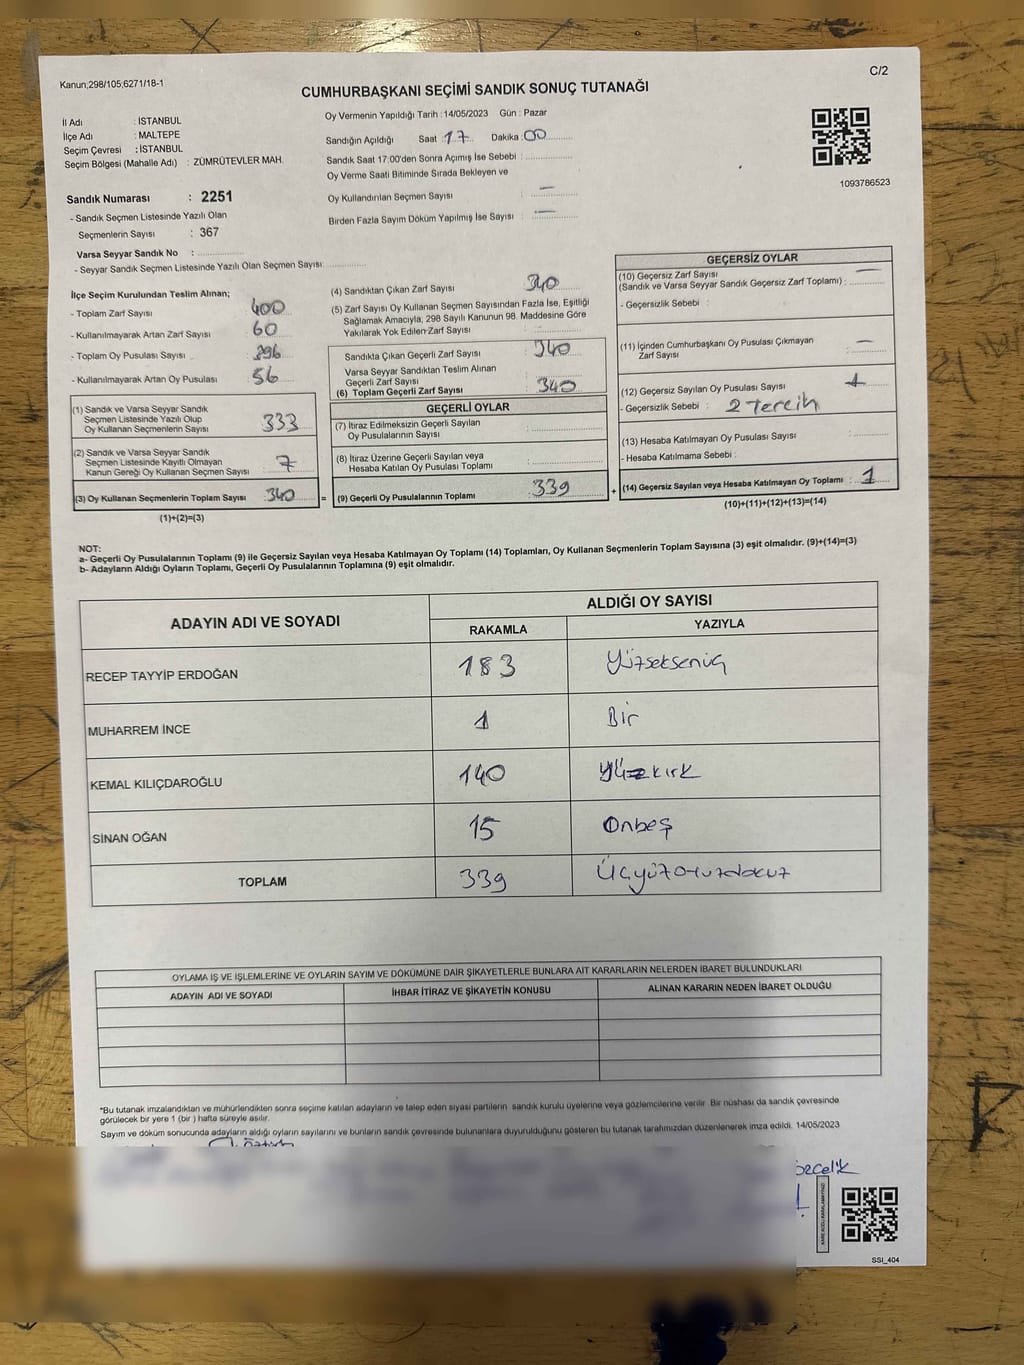 Kanun;298/105;6271/18-1
C/2
CUMHURBAŞKANI SEÇİMİ SANDIK SONUÇ TUTANAĞI
İl Adı : İSTANBUL
İlçe Adı : MALTEPE
Seçim Çevresi : İSTANBUL
Seçim Bölgesi (Mahalle Adı) : ZÜMRÜTEVLER MAH.
Oy Vermenin Yapıldığı Tarih : 14/05/2023 Gün : Pazar
Sandığın Açıldığı Saat 17 Dakika : 00
Sandık Saat 17:00'den Sonra Açımış İse Sebebi :
Oy Verme Saati Bitiminde Sırada Bekleyen ve
Oy Kullandırılan Seçmen Sayısı : —
Birden Fazla Sayım Döküm Yapılmış İse Sayısı : —
1093786523
Sandık Numarası : 2251
- Sandık Seçmen Listesinde Yazılı Olan
Seçmenlerin Sayısı : 367
Varsa Seyyar Sandık No :
- Seyyar Sandık Seçmen Listesinde Yazılı Olan Seçmen Sayısı:
İlçe Seçim Kurulundan Teslim Alınan;
- Toplam Zarf Sayısı : 400
- Kullanılmayarak Artan Zarf Sayısı : 60
- Toplam Oy Pusulası Sayısı : 396
- Kullanılmayarak Artan Oy Pusulası : 56
(1) Sandık ve Varsa Seyyar Sandık
Seçmen Listesinde Yazılı Olup
Oy Kullanan Seçmenlerin Sayısı : 333
(2) Sandık ve Varsa Seyyar Sandık
Seçmen Listesinde Kayıtlı Olmayan
Kanun Gereği Oy Kullanan Seçmen Sayısı : 7
(3) Oy Kullanan Seçmenlerin Toplam Sayısı : 340
(1)+(2)=(3)
(4) Sandıktan Çıkan Zarf Sayısı : 340
(5) Zarf Sayısı Oy Kullanan Seçmen Sayısından Fazla İse, Eşitliği
Sağlamak Amacıyla, 298 Sayılı Kanunun 98. Maddesine Göre
Yakılarak Yok Edilen Zarf Sayısı :
Sandıkta Çıkan Geçerli Zarf Sayısı : 340
Varsa Seyyar Sandıktan Teslim Alınan
Geçerli Zarf Sayısı :
(6) Toplam Geçerli Zarf Sayısı : 340
GEÇERLİ OYLAR
(7) İtiraz Edilmeksizin Geçerli Sayılan
Oy Pusulalarının Sayısı :
(8) İtiraz Üzerine Geçerli Sayılan veya
Hesaba Katılan Oy Pusulası Toplamı :
= (9) Geçerli Oy Pusulalarının Toplamı : 339
GEÇERSİZ OYLAR
(10) Geçersiz Zarf Sayısı
(Sandık ve Varsa Seyyar Sandık Geçersiz Zarf Toplamı) : —
- Geçersizlik Sebebi :
(11) İçinden Cumhurbaşkanı Oy Pusulası Çıkmayan
Zarf Sayısı : —
(12) Geçersiz Sayılan Oy Pusulası Sayısı : 1
- Geçersizlik Sebebi : 2 Tercih
(13) Hesaba Katılmayan Oy Pusulası Sayısı :
- Hesaba Katılmama Sebebi :
+ (14) Geçersiz Sayılan veya Hesaba Katılmayan Oy Toplamı : 1
(10)+(11)+(12)+(13)=(14)
NOT:
a- Geçerli Oy Pusulalarının Toplamı (9) ile Geçersiz Sayılan veya Hesaba Katılmayan Oy Toplamı (14) Toplamları, Oy Kullanan Seçmenlerin Toplam Sayısına (3) eşit olmalıdır. (9)+(14)=(3)
b- Adayların Aldığı Oyların Toplamı, Geçerli Oy Pusulalarının Toplamına (9) eşit olmalıdır.
ADAYIN ADI VE SOYADI ALDIĞI OY SAYISI
RAKAMLA YAZIYLA
RECEP TAYYİP ERDOĞAN 183 Yüzseksenüç
MUHARREM İNCE 1 Bir
KEMAL KILIÇDAROĞLU 140 Yüzkırk
SİNAN OĞAN 15 Onbeş
TOPLAM 339 Üçyüzotuzdokuz
OYLAMA İŞ VE İŞLEMLERİNE VE OYLARIN SAYIM VE DÖKÜMÜNE DAİR ŞİKAYETLERLE BUNLARA AİT KARARLARIN NELERDEN İBARET BULUNDUKLARI
ADAYIN ADI VE SOYADI İHBAR İTİRAZ VE ŞİKAYETİN KONUSU ALINAN KARARIN NEDEN İBARET OLDUĞU
*Bu tutanak imzalandıktan ve mühürlendikten sonra seçime katılan adayların ve talep eden siyasi partilerin sandık kurulu üyelerine veya gözlemcilerine verilir. Bir nüshası da sandık çevresinde
görülecek bir yere 1 (bir) hafta süreyle asılır.
Sayım ve döküm sonucunda adayların aldığı oyların sayılarını ve bunların sandık çevresinde bulunanlara duyurulduğunu gösteren bu tutanak tarafımızdan düzenlenerek imza edildi. 14/05/2023
SSI_404